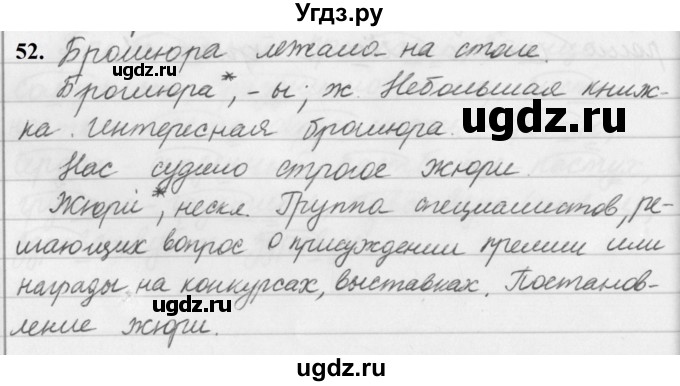 Угдз.ру
52. Брошюра лежала на столе.
Брошюра*, -ы; ж. Небольшая книж-
ка. Интересная брошюра.
Нас судило строгое жюри.
Жюри*, нескл. Группа специалистов, ре-
шающих вопрос о присуждении премии или
награды на конкурсах, выставках. Постанов-
ление жюри.
ugdz.ru
ugdz.ru
ugdz.ru
ugdz.ru
ugdz.ru